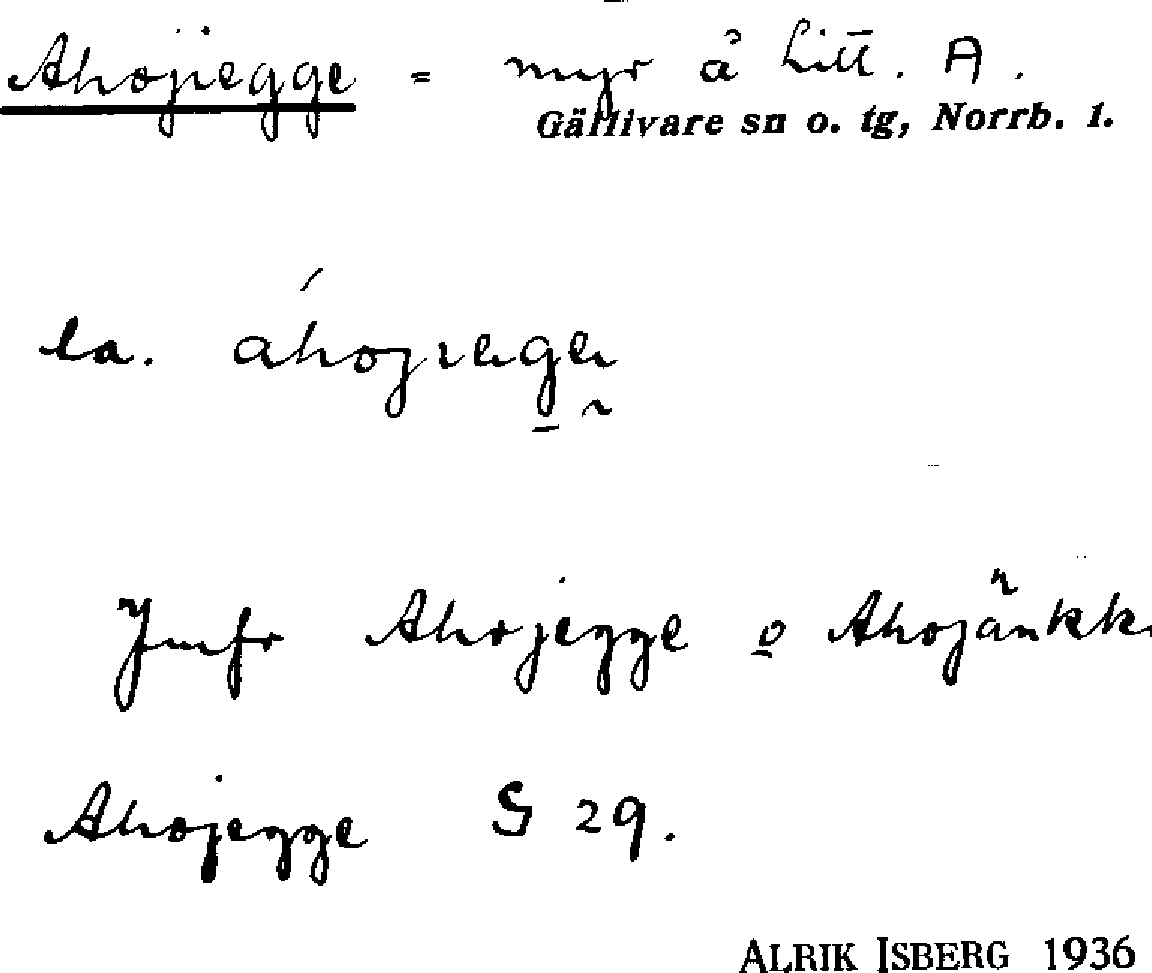 Ahojiegge = myr å Litt. A.
Gällivare sn o. tg, Norrb. 1.
la.
Jmfr Ahojegge o Ahojänkk
Ahojegge S 29.
ALRIK ISBERG 1936